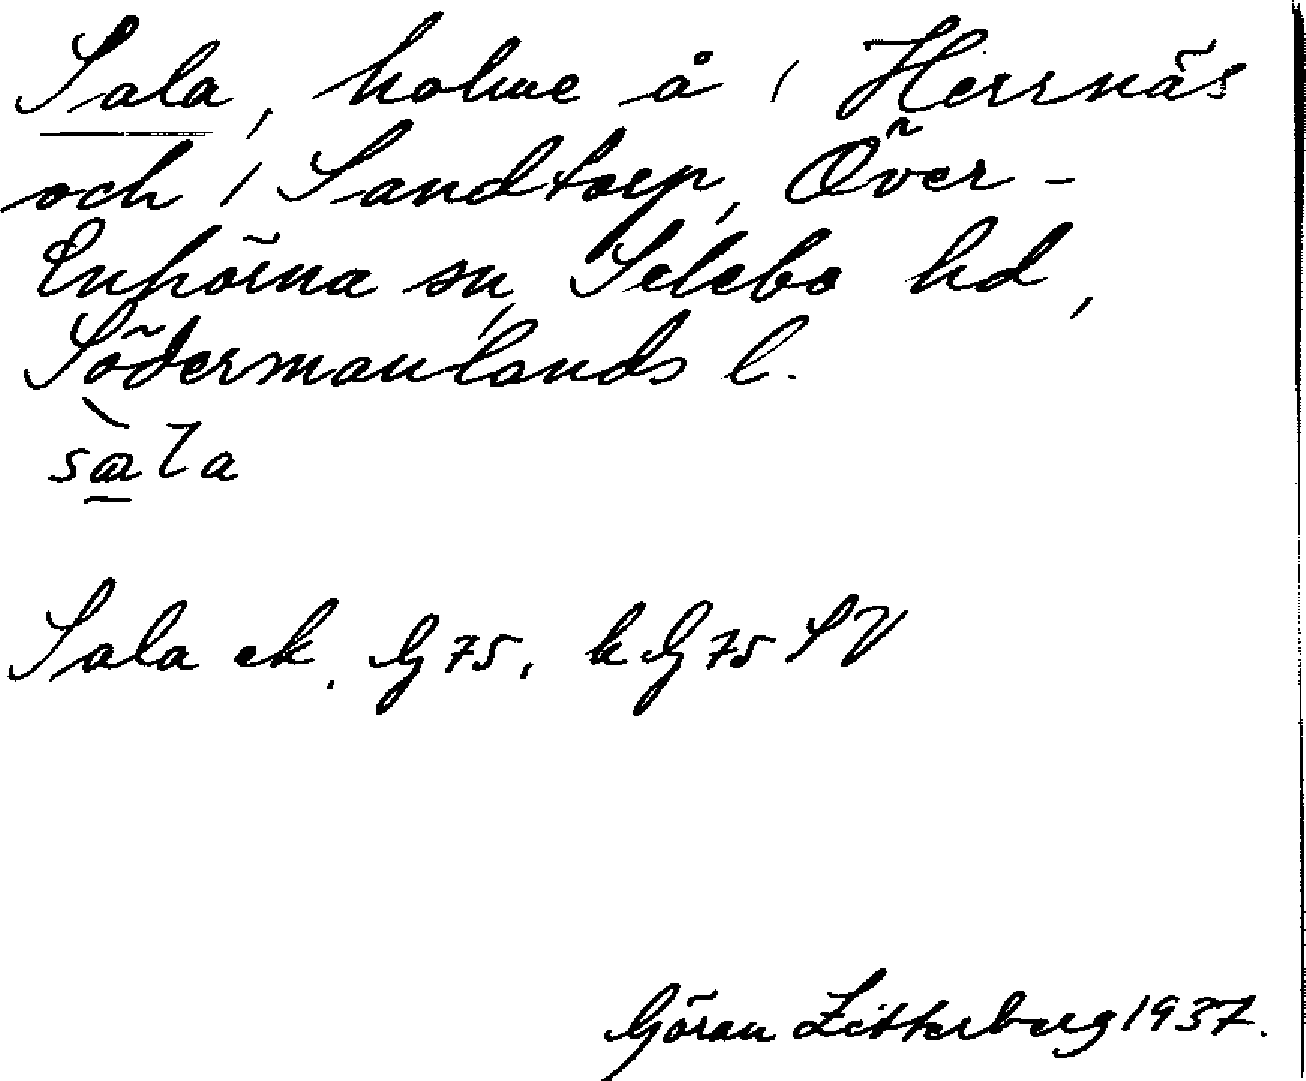 Sala, holme å i Herrnäs
och i Sandtorp, Över-
Enhörna sn, Selebo hd,
Södermanlands l.
sà̱la
Sala ek. G 75, k G 75 SV
Göran Zetterberg 1937.